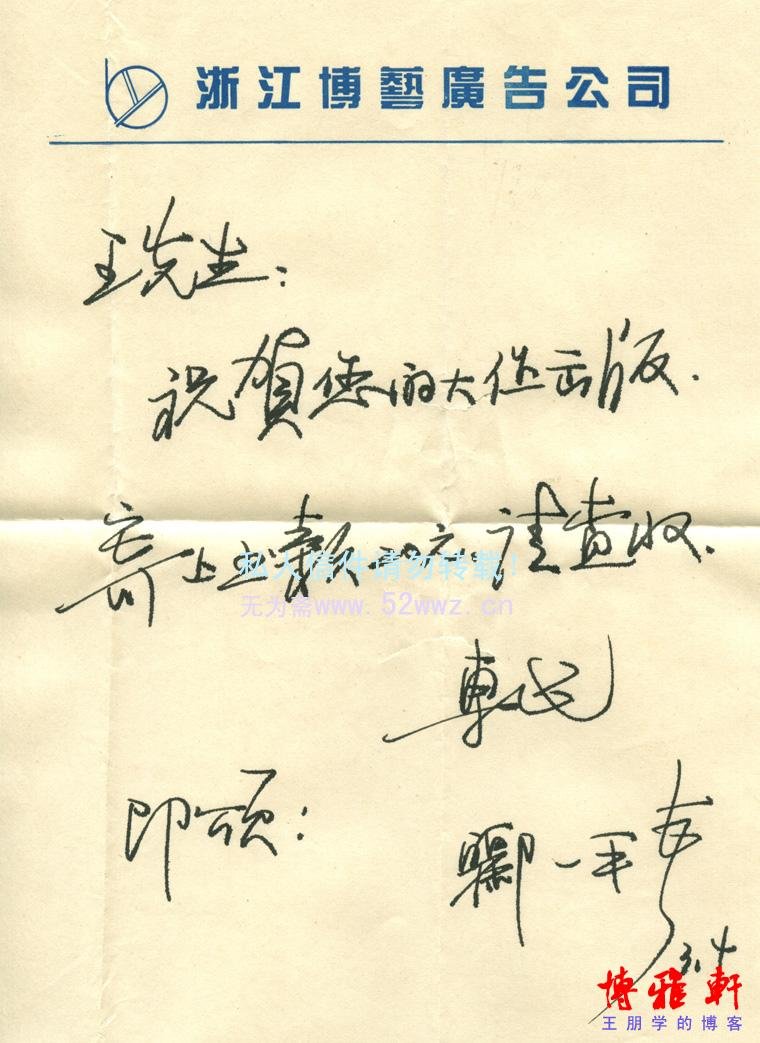 浙江博藝廣告公司
王先生：
祝賀您的大作出版.
寄上 款 请查收.
私人信件请勿转载!
无为斋www.52wwz.cn
专此
即颂：
一平
3.4
博雅軒
王朋学的博客